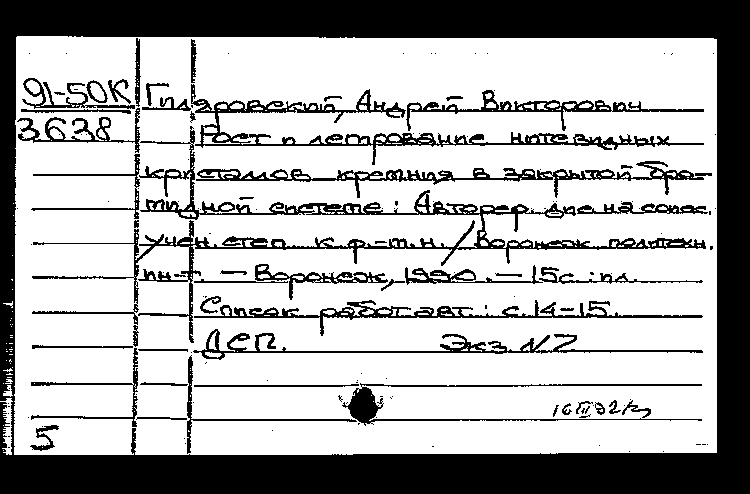 91-50К Гиляровский, Андрей Викторович
3638 Рост и легирование нитевидных
кристаллов кремния в закрытой бро-
мидной системе: Автореф. дис. на соиск.
учен. степ. к.ф.-м.н. / Воронеж. политехн.
ин-т. — Воронеж, 1990. — 15с.: ил.
Список работ авт.: с. 14-15.
ДСП. Экз. N7
16 III 92
5